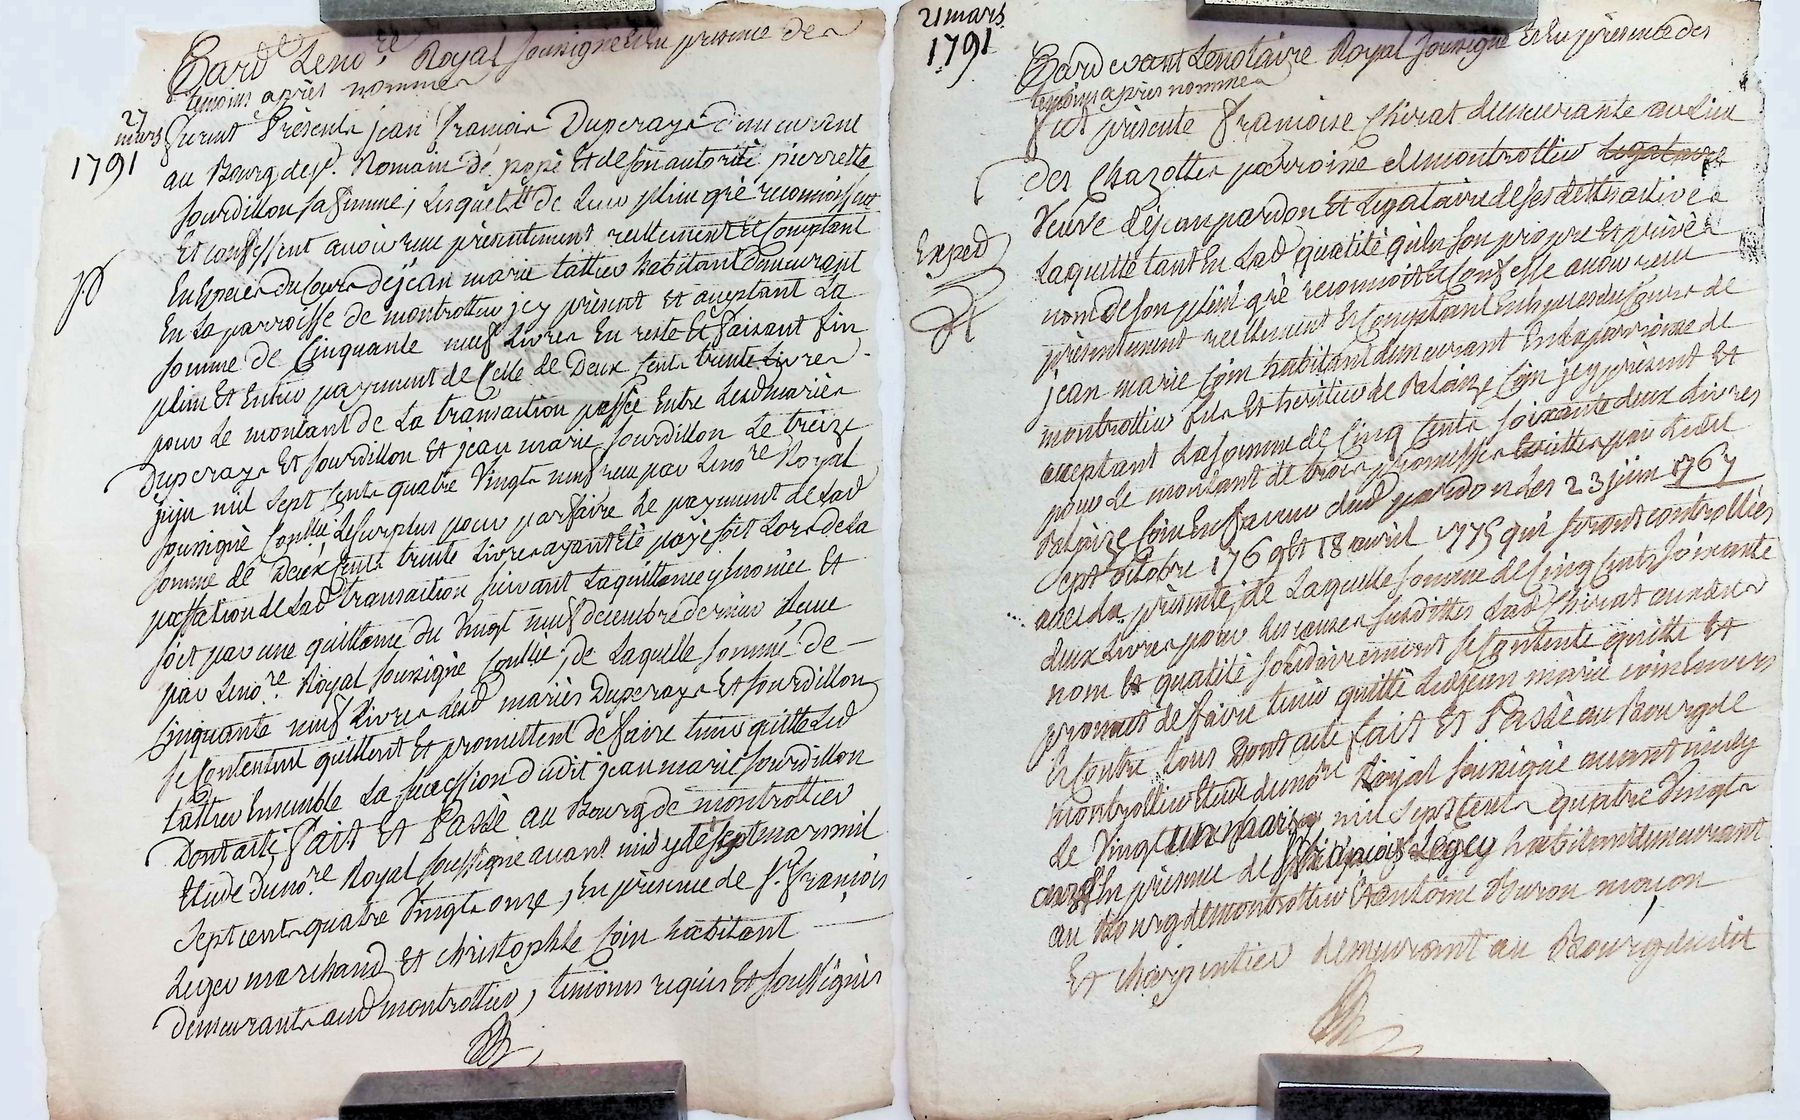 Pard.t Le no.re Royal soussigné et en presence des
temoins après nommés
27
mars
1791
furent Présents jean francois Duperays demeurant
au Bourg de s.t Romain de popé et de son autorité pierrette
sourdillon sa femme, Lesquels de Leur plein gré reconnoissent
Et confessent avoir reçu présentement reellement et Comptant
En Especes du Cours de jean marie tattieu habitant demeurant
En La parroisse de montrottier jcy présent et aceptant La
somme de Cinquante neuf Livres En reste Et faisant fin
plein Et Entier payement de Celle de Deux Cents trente Livres
pour Le montant de La transaction passée Entre Lesd mariés
Duperays Et sourdillon Et jean marie sourdillon Le treize
juin mil sept cents quatre Vingt neuf reçu par Le no.re Royal
soussigné Con.llée Le surplus pour parfaire Le payment de Lad
somme de Deux Cents trente Livres ayant Eté payé soit Lors de La
passation de Lad transaction suivant La quittance y Enoncée Et
soit par une quittance du Vingt neuf decembre dernier reçue
par Le no.re Royal soussigné Con.llée, de Laquelle somme de
Cinquante neuf Livres Lesd mariés Duperays Et sourdillon
se Contentent quittent Et promettent de faire tenir quitte Led
tattieu Ensemble La succession dudit jean marie sourdillon
Dont acte, fait Et Passé au Bourg de montrottier
Etude du no.re Royal soussigné avant midy Le sept mars mil
sept cents quatre Vingt onze, En présence de s.r françois
Leger marchand Et christophle Coin habitant
demeurants aud montrottier, temoins requis Et soussignés
21 mars
1791
Pardevant Le notaire Royal soussigné Et En présence des
temoins après nommés
fut présente francoise Chirat demeurante au Lieu
des Chazottes parroisse de montrottier Legataire
Veuve de jean pardon Et Legataire de ses dettes actives
Exped
Laquelle tant En Lad qualité qu'En son propre Et privé
nom de son plein gré reconnoit Et Confesse avoir reçu
présentement reellement Et Comptant En Especes du Cours de
jean marie Coin habitant demeurant En La parroisse de
montrottier fils Et heritier de Balaize Coin jcy présent Et
aceptant La somme de Cinq Cents soixante deux Livres
pour Le montant de trois promesses Ecrittes par Ledit
Balaize Coin En faveur dud pardon Les 23 juin 1767
sept octobre 1769 Et 18 avril 1775 qui seront controllées
avec La présente, de Laquelle somme de Cinq Cents soixante
deux Livres pour Les causes susdittes Lad Chirat auxdits
nom Et qualité solidairement se Contente quitte Et
promet de faire tenir quitte Led jean marie Coin Envers
Et Contre tous Dont acte fait Et Passé au Bourg de
montrottier Etude du no.re Royal soussigné avant midy
Le Vingt un mars mil sept cents quatre Vingt
onze En présence de françois Leger habitant demeurant
au Bourg de montrottier Et antoine Buron maçon
Et charpentier demeurant au Bourg dudit